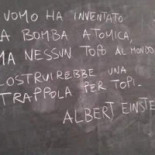 UOMO HA INVENTATO
A BOMBA ATOMICA,
MA NESSUN TOPO AL MONDO
COSTRUIREBBE UNA
TRAPPOLA PER TOPI.
ALBERT EINSTE